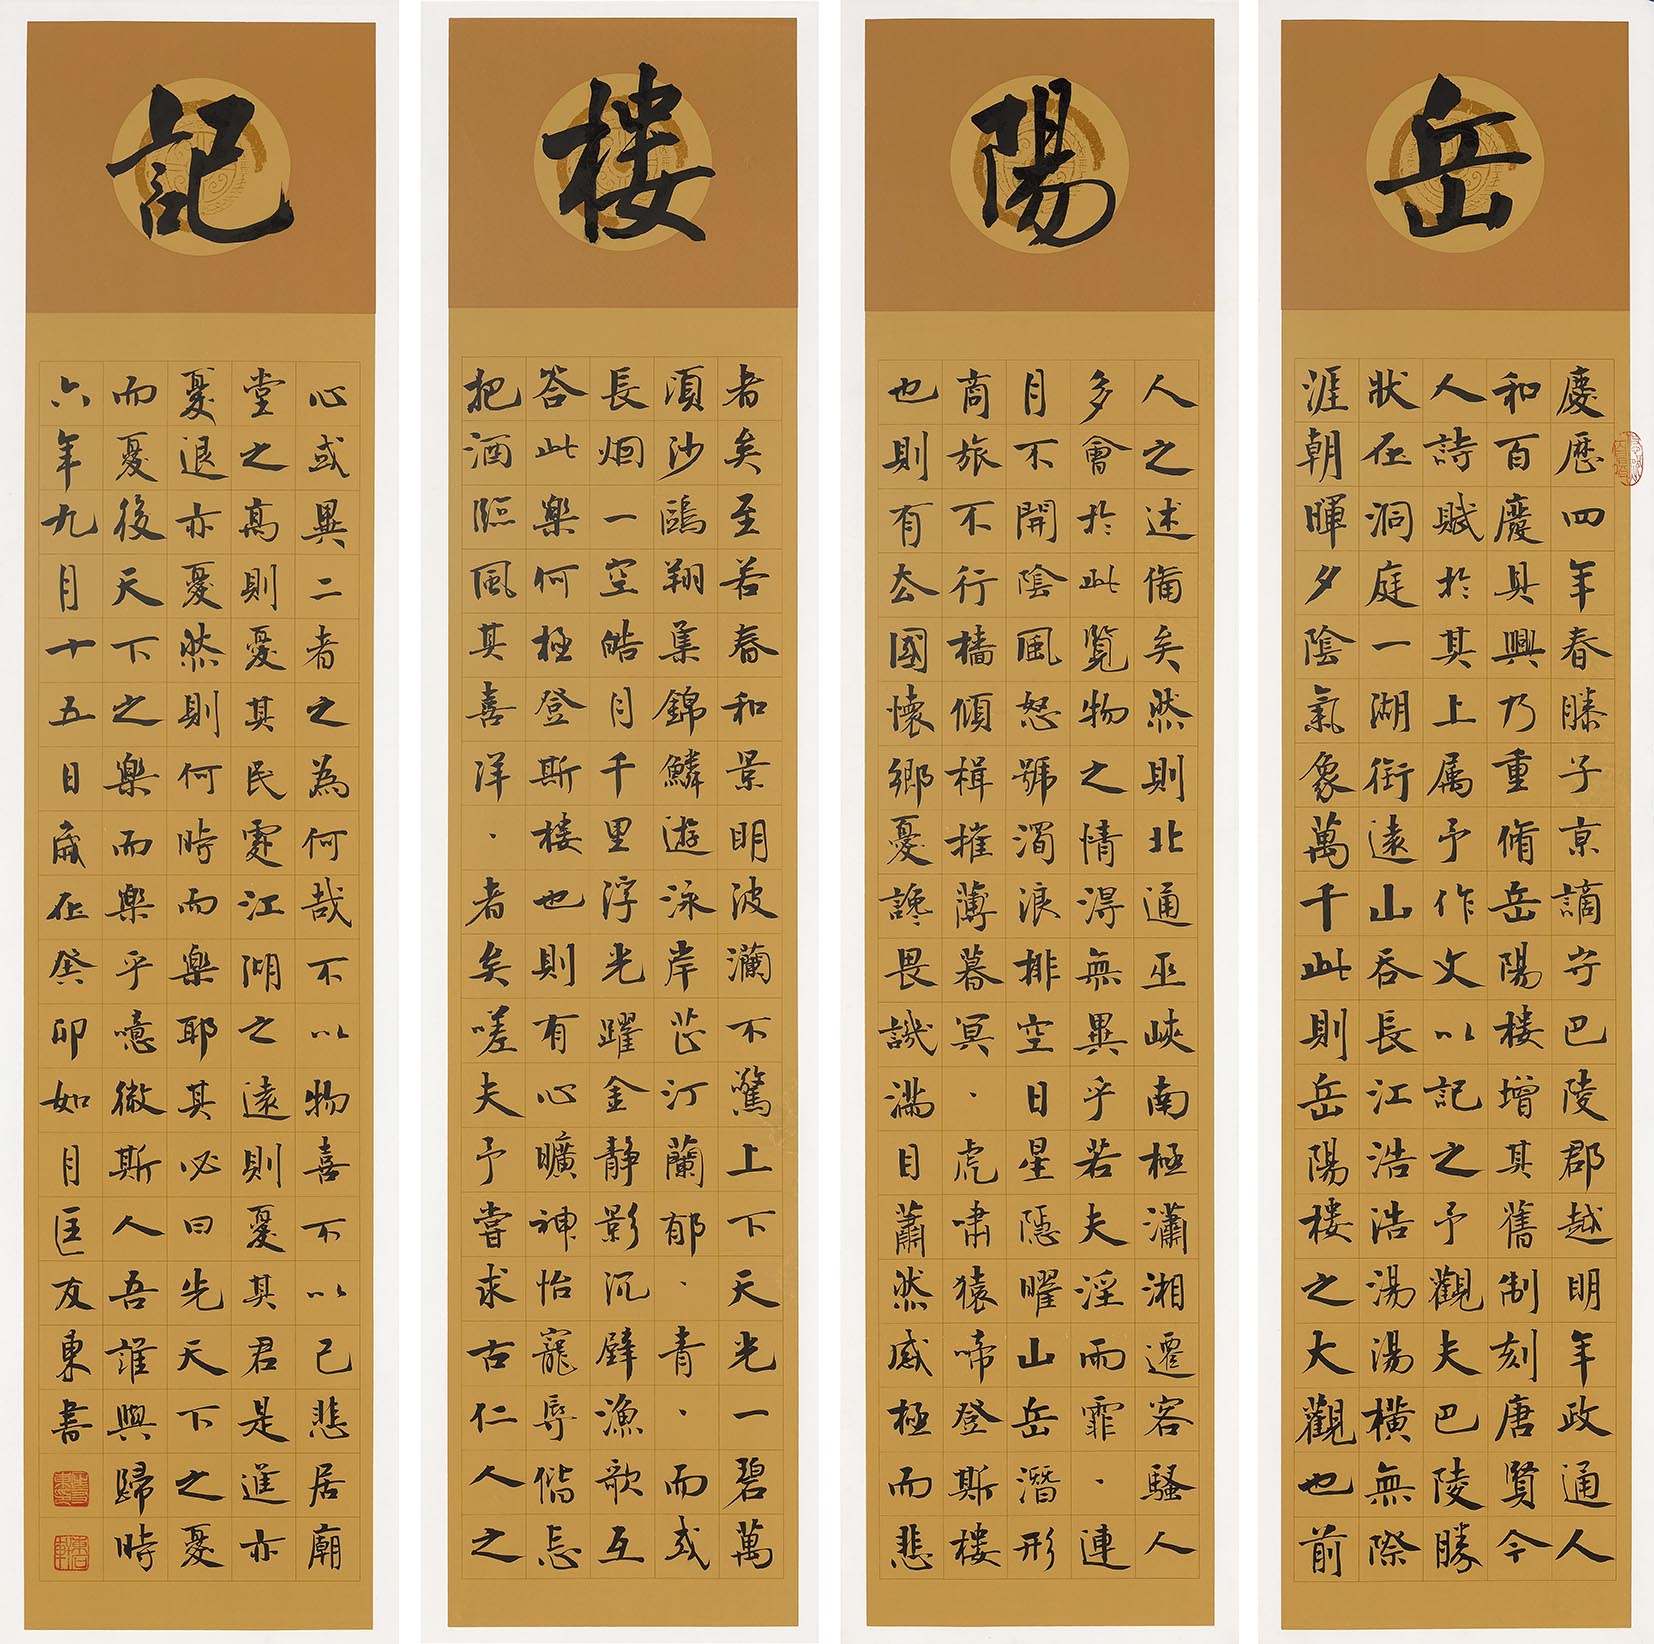 岳
慶歷四年春滕子京謫守巴陵郡越明年政通人
和百廢具興乃重脩岳陽楼增其舊制刻唐賢今
人詩賦於其上属予作文以記之予觀夫巴陵勝
狀在洞庭一湖銜遠山吞長江浩浩湯湯橫無際
涯朝暉夕陰氣象萬千此則岳陽楼之大觀也前
陽
人之述備矣然則北通巫峽南極瀟湘遷客騷人
多會於此覽物之情得無異乎若夫淫雨霏、連
月不開陰風怒號濁浪排空日星隱曜山岳潛形
商旅不行檣傾楫摧薄暮冥、虎嘯猿啼登斯楼
也則有去國懷鄉憂讒畏譏滿目蕭然感極而悲
楼
者矣至若春和景明波瀾不驚上下天光一碧萬
頃沙鷗翔集錦鱗遊泳岸芷汀蘭郁、青、而或
長烟一空皓月千里浮光躍金靜影沉璧漁歌互
答此樂何極登斯楼也則有心曠神怡寵辱偕忘
把酒臨風其喜洋、者矣嗟夫予嘗求古仁人之
記
心或異二者之為何哉不以物喜不以己悲居廟
堂之高則憂其民處江湖之遠則憂其君是進亦
憂退亦憂然則何時而樂耶其必曰先天下之憂
而憂後天下之樂而樂乎噫微斯人吾誰與歸時
六年九月十五日歲在癸卯如月匡友東書